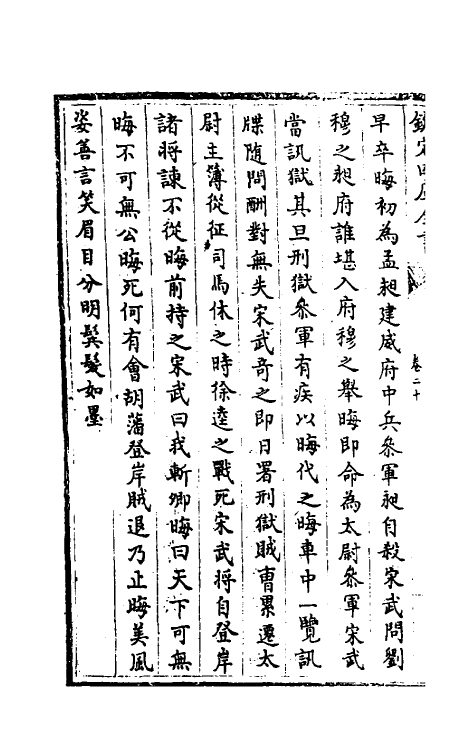 欽定四庫全書
卷二十
早卒晦初為孟昶建威府中兵叅軍昶自殺宋武問劉
穆之昶府誰堪入府穆之舉晦即命為太尉叅軍宋武
當訊獄其旦刑獄叅軍有疾以晦代之晦車中一覽訊
牒隨問酬對無失宋武奇之即日署刑獄賊曹累遷太
尉主簿從征司馬休之時徐逵之戰死宋武將自登岸
諸將諫不從晦前持之宋武曰我斬卿晦曰天下可無
晦不可無公晦死何有會胡藩登岸賊退乃止晦美風
姿善言笑眉目分明鬢髮如墨